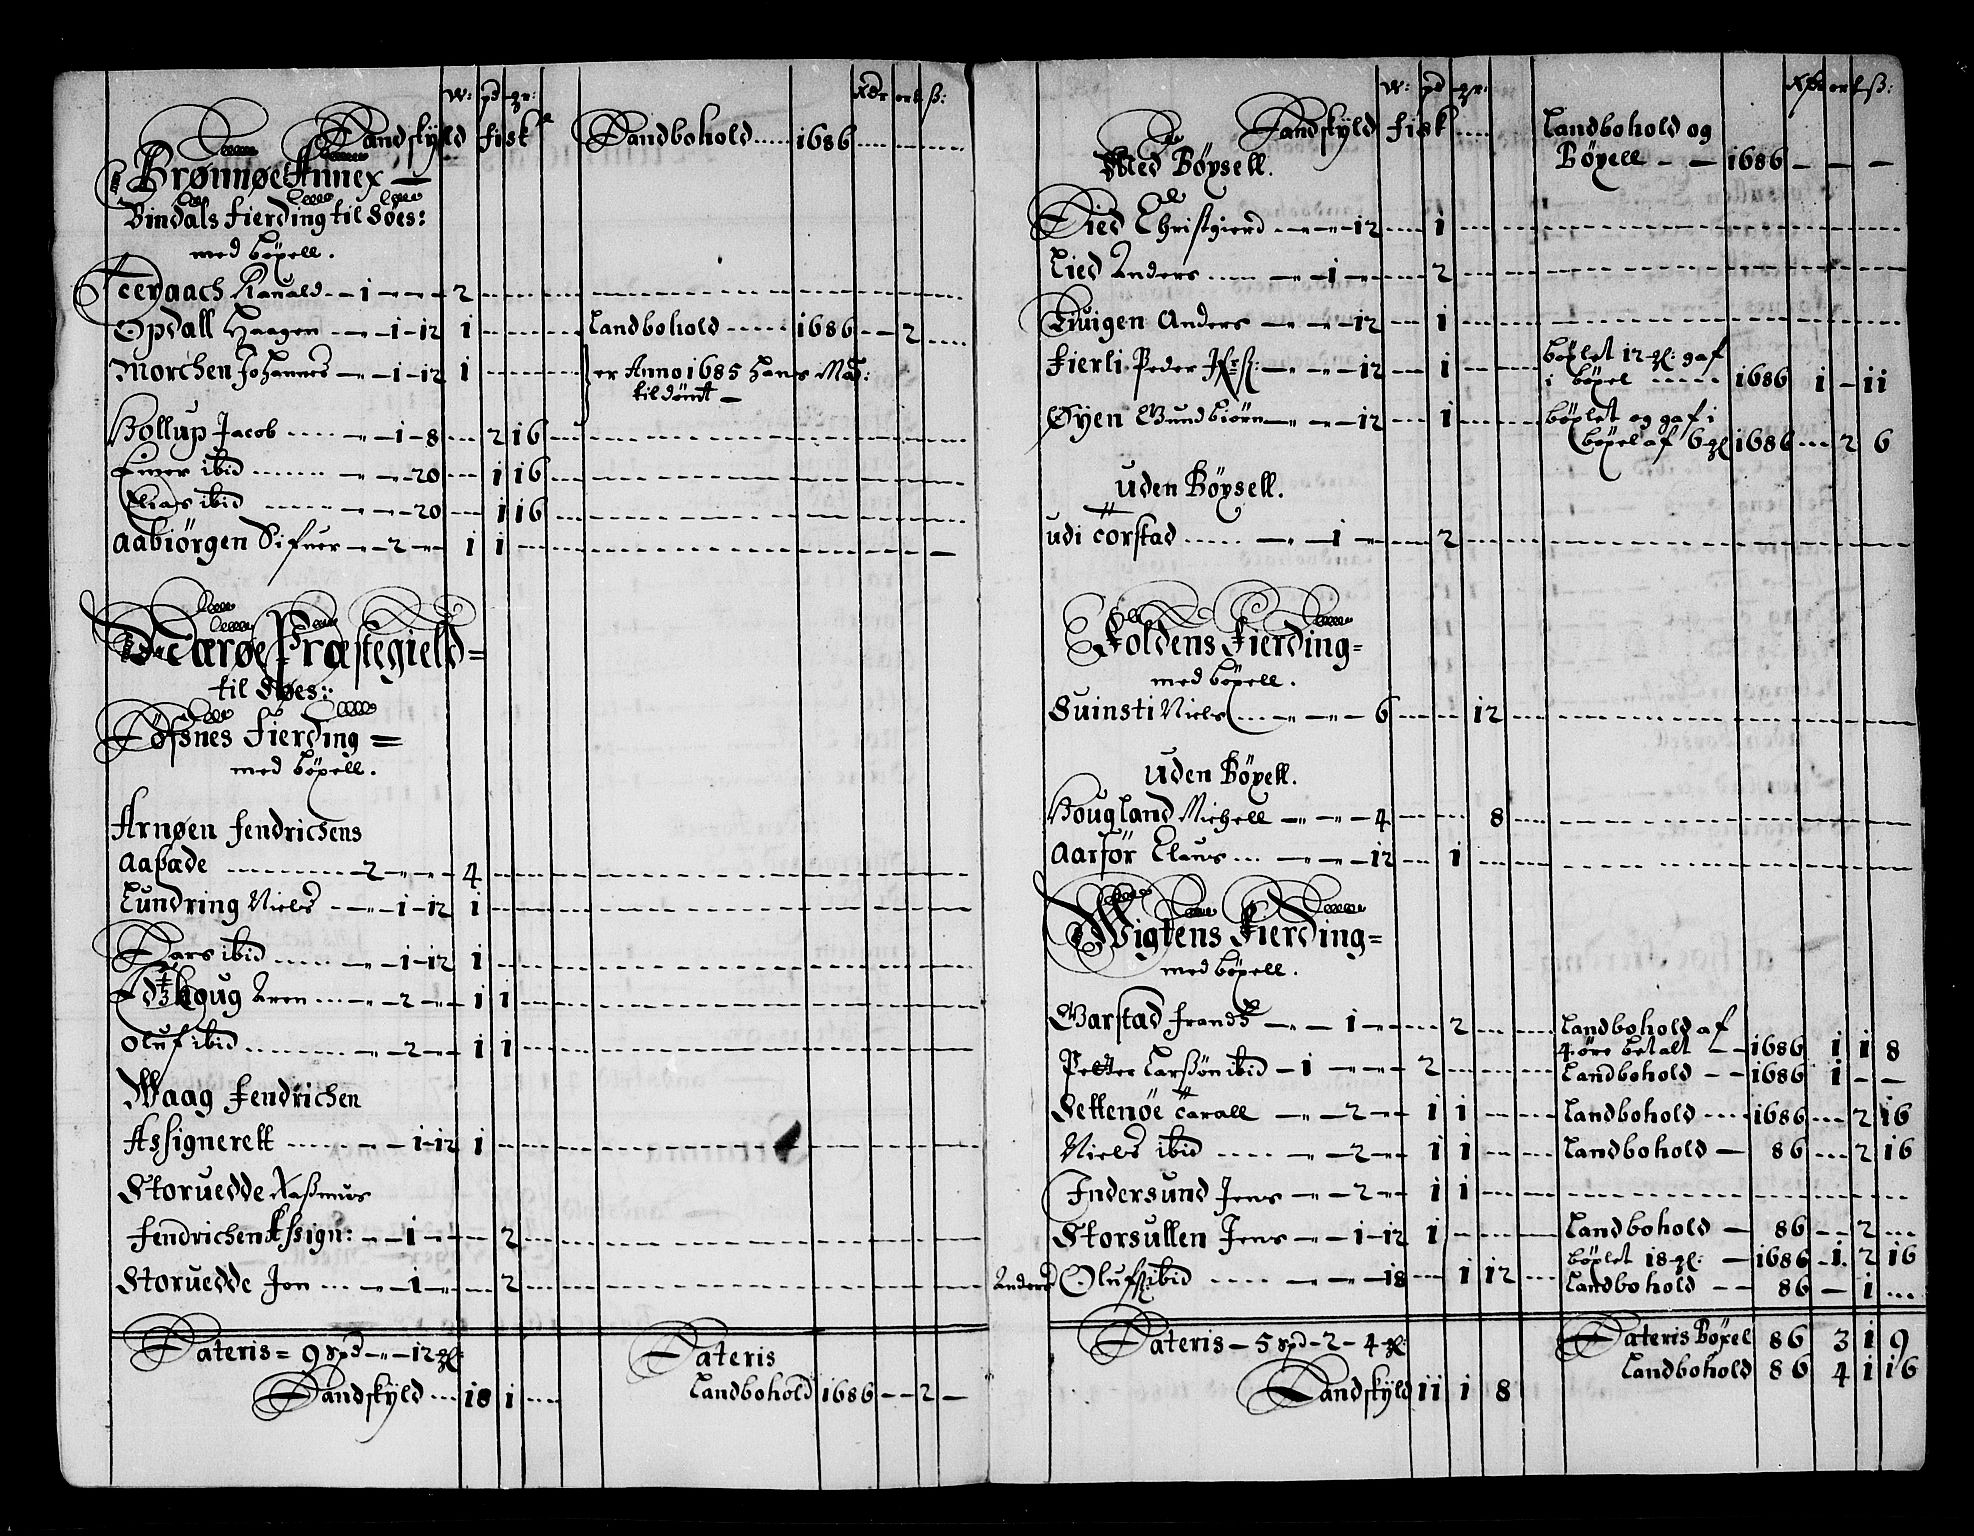 w: pd gr: Rdr ort ß:
Landskyld fisk Landbohold ..... 1686
Brønnøe Annex
Bindals fierding til Søes:
med böxell.
Terraach Ranald - - 1 - - - 2
Opdall Haagen - - 1 - 12 1 Landbohold ..... 1686 - - 2
Morchen Johannes - - 1 - 12 1 er Anno 1685 Hans Maÿ:
tildömt -
Hollup Jacob ..... - - 1 - 8 2 16
Einer ibid - - - 20 1 16
Elias ibid - - - 20 1 16
Aabiörgen Sifuer - - 2 - - 1 1
Nærøe Præstegield =
til Søes:
Föfsnes fierding =
med böxell.
Arnøen fendrichens
Aabæde - 2 - - - 4
Lundring Niels - - 1 - 12 1
Lars ibid ..... - - 1 - 12 1
houg Aren ... - - 2 - - 1 1
Oluf ibid - - 2 - - 1 1
Waag fendrichen
Assignerett ...... - - 1 - 12 1
Storuedde Raßmus
fendrichen Assign: - - 1 - - 2
Storuedde Jon ... - - 1 - - 2
Lateris = 9 spd - - - 12 gl: Lateris
Landskyld ... 18 1 Landbohold 1686 - - 2 -
w: pd gr: Rdr ort ß:
Landskyld fisk Landbohold og
Med Böxsell. Böxell - - 1686 - - -
Lied Christgierd - - - 12 1
Lied Anders ..... - - 1 - 2
Tiuigen Anders - - - - 12 1
fierli Peder - - - 12 1 böxlet 12 gl: gaf
i böxel ..... 1686 1 - 11
Øyen Gundbiörn - - - 12 1 böxlet og gaf i
böxel af 6 gl 1686 ... 2 6
uden Böxsell.
udi Törstad ..... - - 1 - 2
Foldens Fierding =
med böxell.
Suinsti Niels ... - - - 6 12
uden Böxell.
Hougland Michell - - - 4 8
Aarför Claus ... - - - 12 1
Wigtens Fierding =
med böxell.
Garstad frandz - - - 1 - 2 Landbohold af
4 öre betalt - - 1686 1 1 8
Petter Larßön ibid - 1 - - - 2 Landbohold - - 1686 1 - -
Settenöe Carall - - - 2 - - 1 1 Landbohold ..... 1686 ... 2 16
Niels ibid ..... - - 2 - - 1 1 Landbohold - 86 ... 2 16
Indersund Jens - - - 2 - - 1 1
Storsullen Jens - - 1 - 12 1 Landbohold - 86 - - 2 ...
böxlet 18 gl: - 1686 - 1 2 16
Anders Olufß: ibid ..... - - - 18 1 12 Landbohold - - 86 - 1 ...
Lateris - 5 spd - 2 - 4 gl: Lateris Böxel 86 3 1 9
Landskyld 11 1 8 Landbohold 86 4 1 16